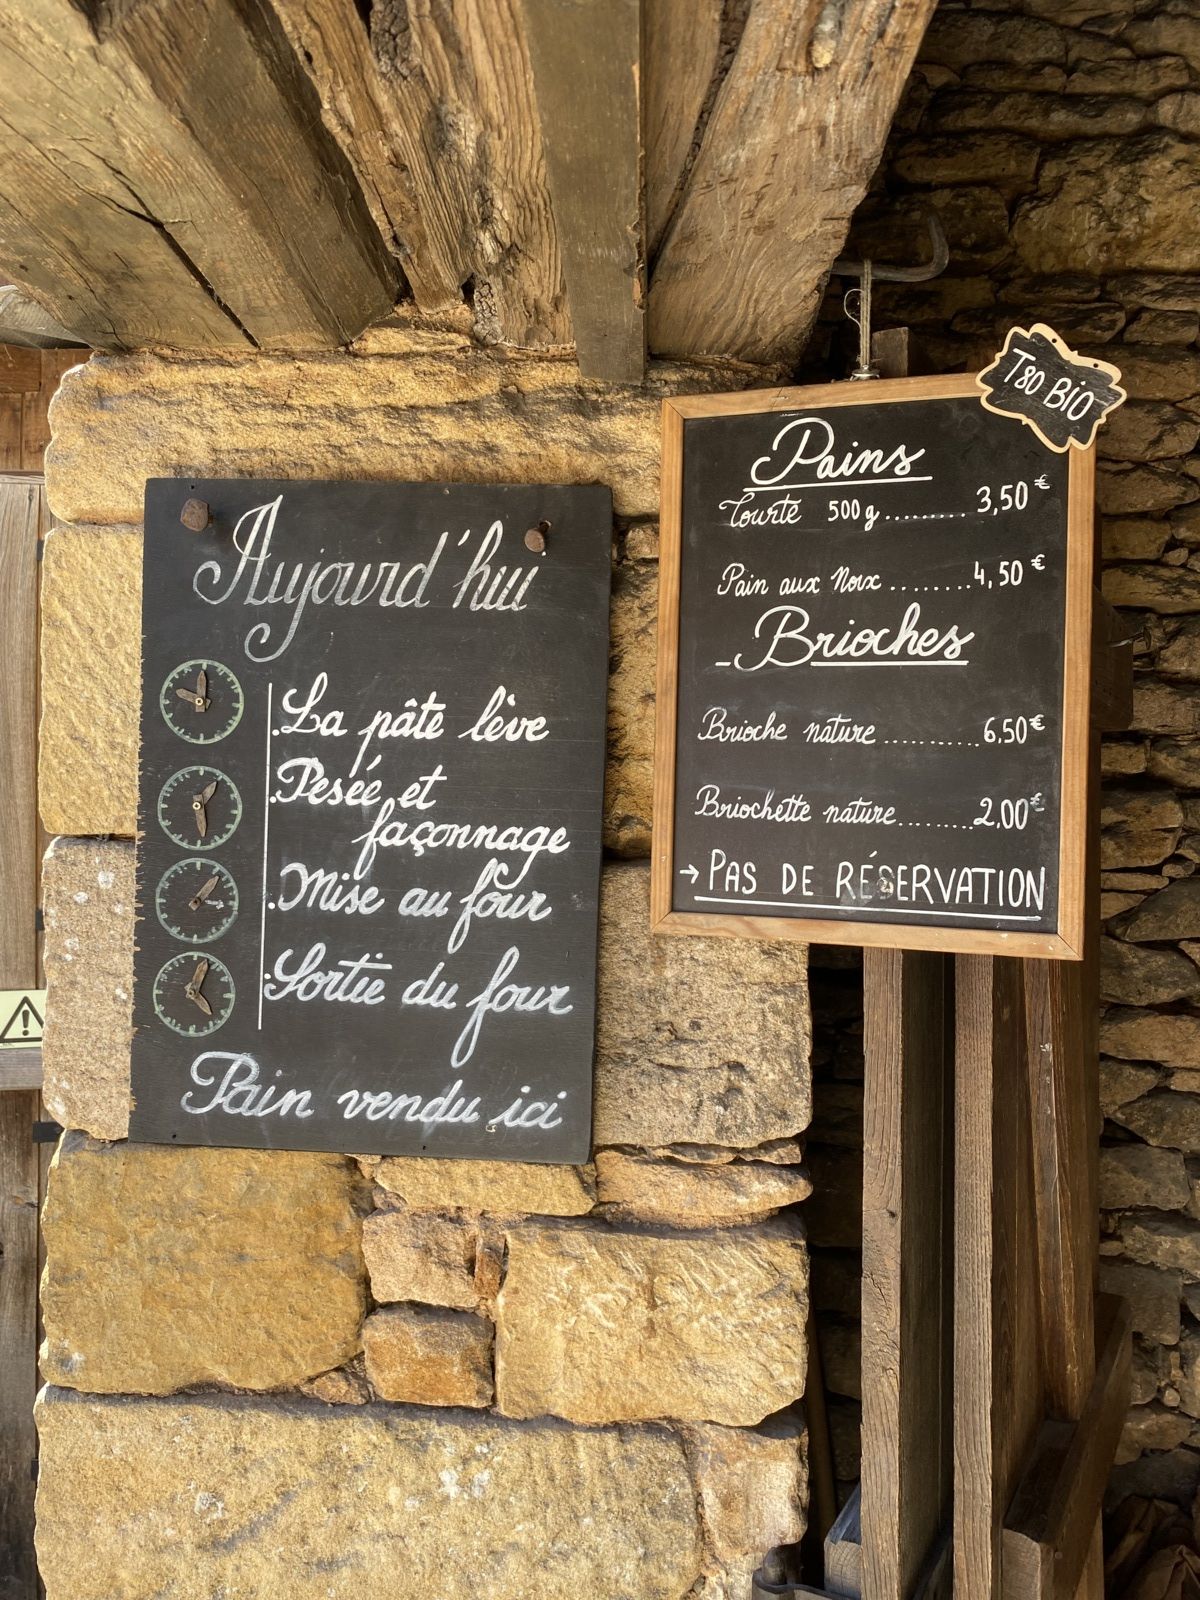 Aujourd'hui
. La pâte lève
. Pesée et
façonnage
. Mise au four
. Sortie du four
Pain vendu ici
T80 BIO
Pains
Tourte 500g......... 3,50€
Pain aux Noix ........4,50€
- Brioches
Brioche nature ..........6,50€
Briochette nature.........2,00€
→ PAS DE RÉSERVATION